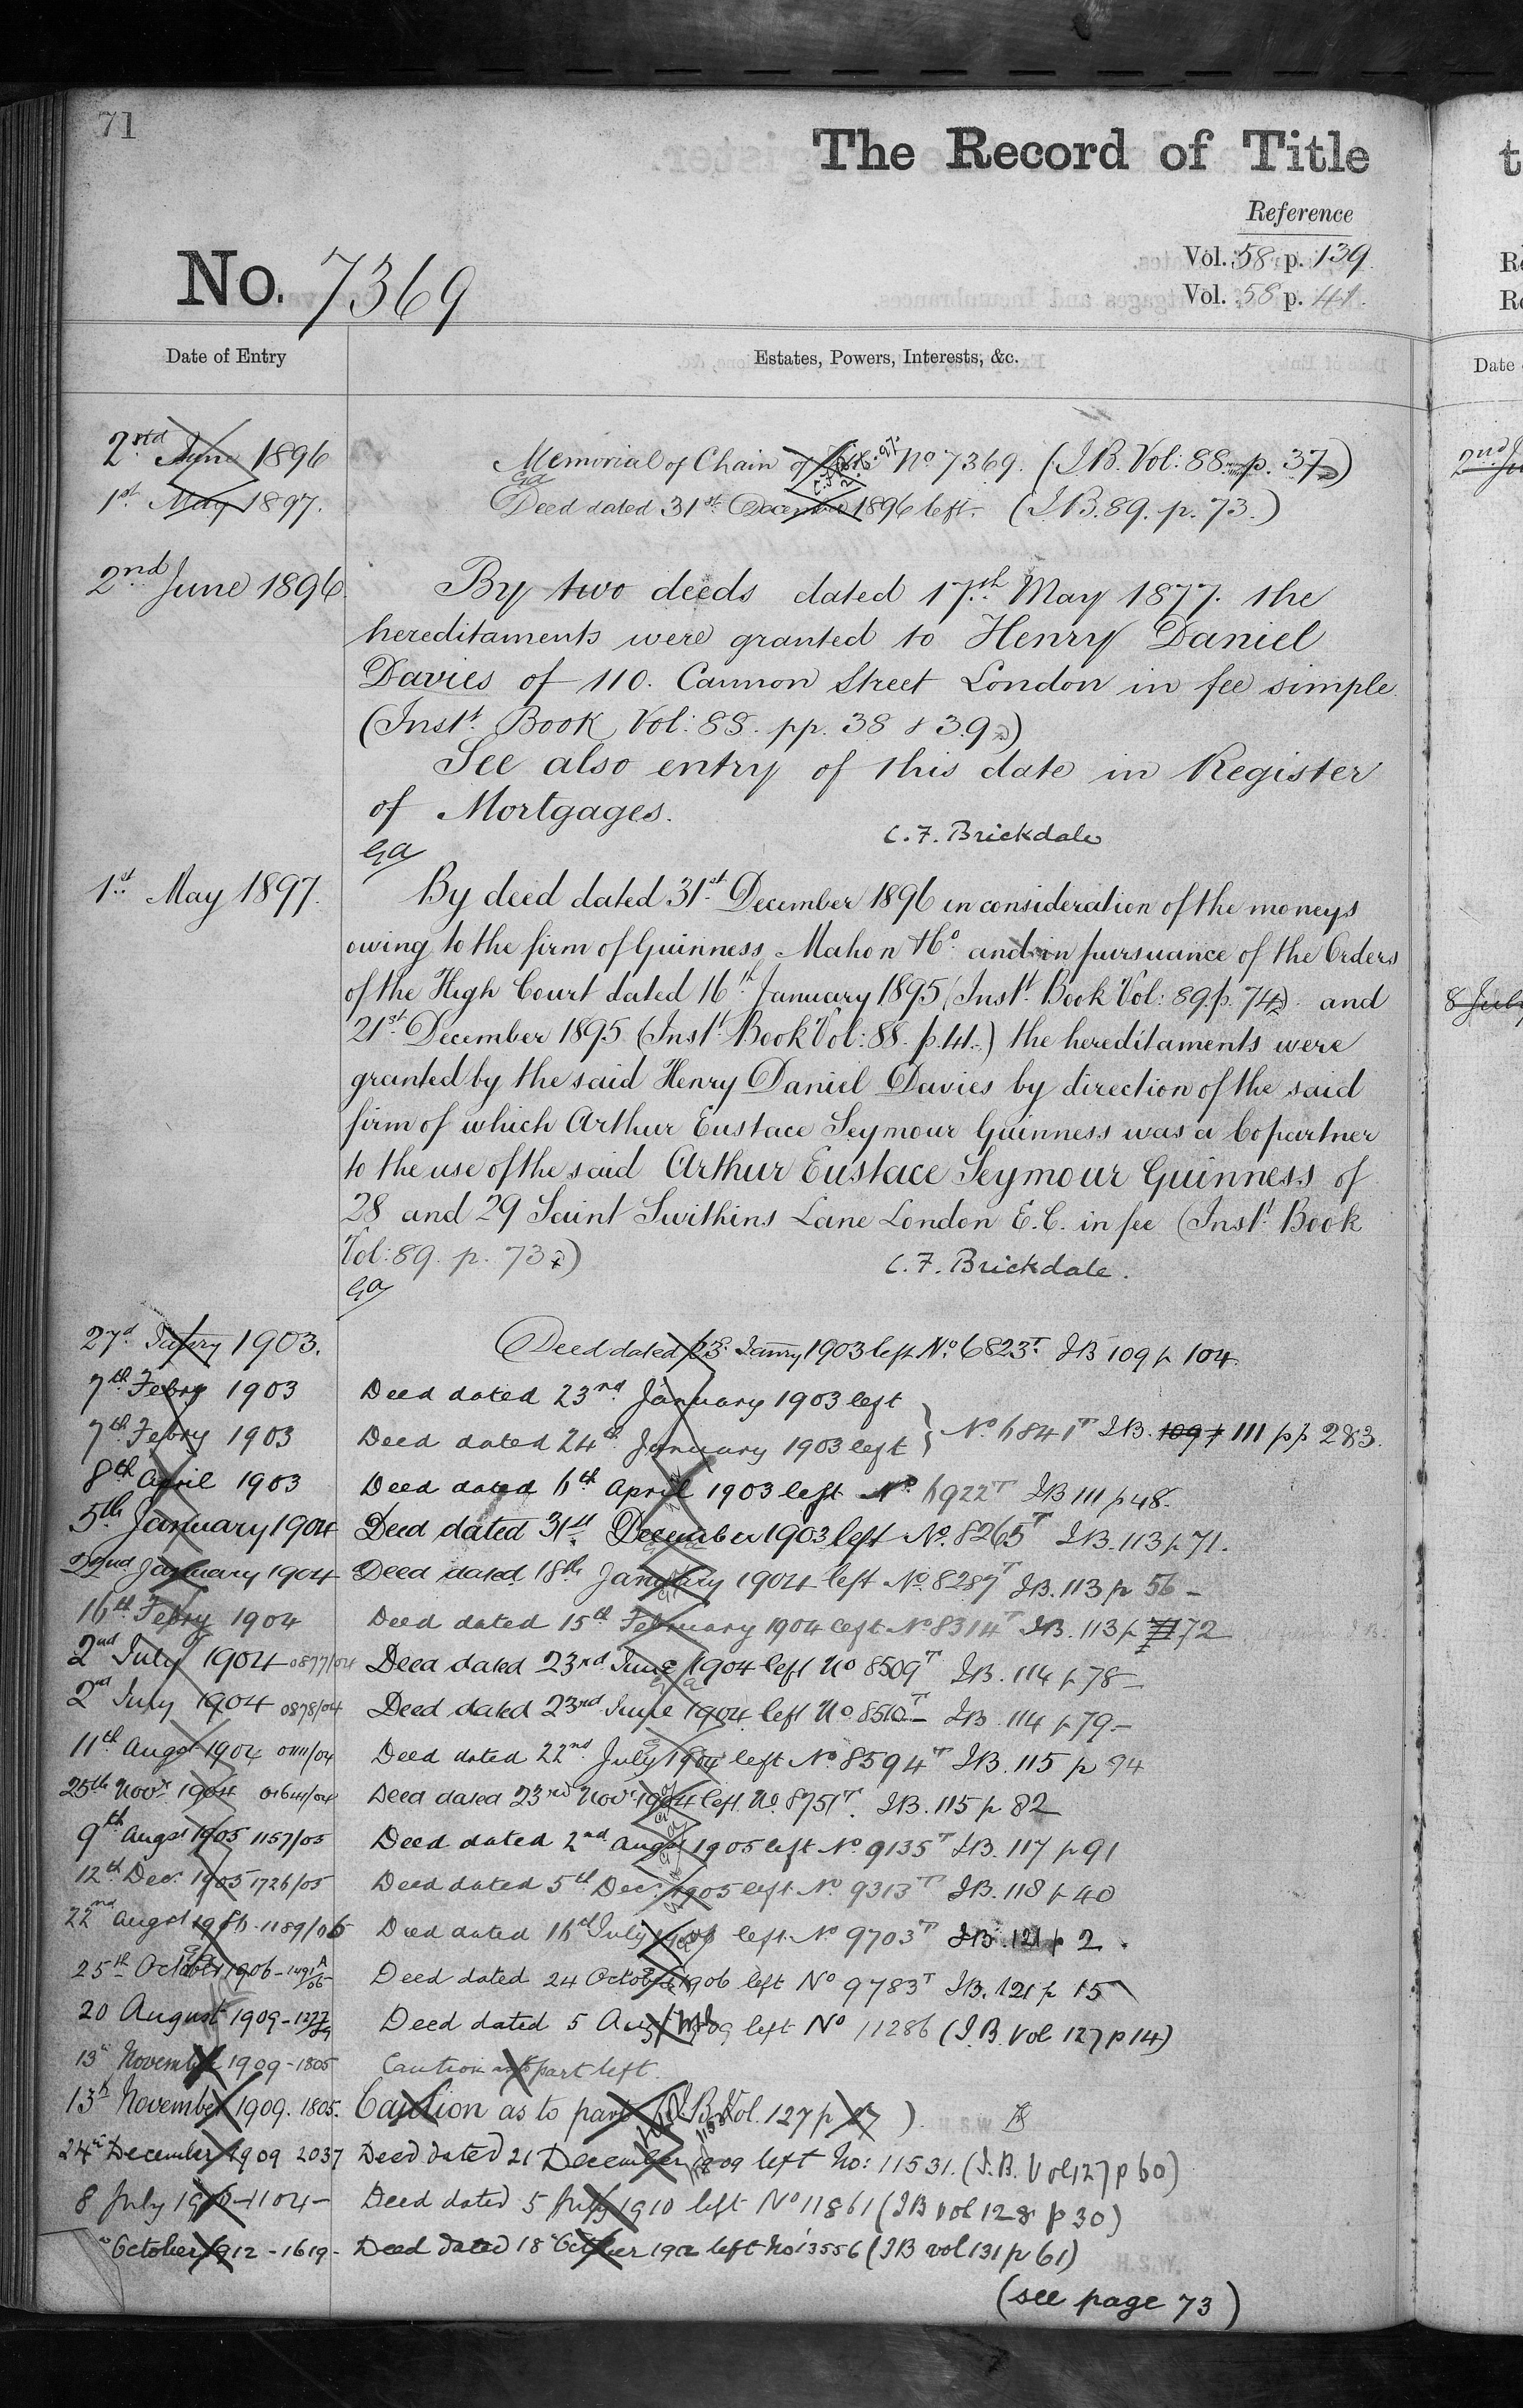 71
The Record of Title
Reference
No. 7369
Vol. 58 p. 139.
Vol. 58 p. 41.
Date of Entry
Estates, Powers, Interests, &c.
2nd June 1896 Memorial of Chain of No 7369. (I.B. Vol: 88 p. 37)
1st May 1897. Deed dated 31st December 1896 left. (I.B. 89. p. 73.)
2nd June 1896 By two deeds dated 17th May 1877. the
hereditaments were granted to Henry Daniel
Davies of 110. Cannon Street London in fee simple.
(Inst. Book Vol: 88. pp. 38 & 39)
See also entry of this date in Register
of Mortgages.
C. F. Brickdale
Ga
1st May 1897. By deed dated 31st December 1896 in consideration of the moneys
owing to the firm of Guinness Mahon & Co. and in pursuance of the Orders
of the High Court dated 16th January 1895 (Inst. Book Vol: 89. p. 74) and
21st December 1895 (Inst. Book Vol: 88. p. 41.) the hereditaments were
granted by the said Henry Daniel Davies by direction of the said
firm of which Arthur Eustace Seymour Guinness was a Copartner
to the use of the said Arthur Eustace Seymour Guinness of
28 and 29 Saint Swithins Lane London E.C. in fee (Inst. Book
Vol: 89. p. 73)
C. F. Brickdale.
Ga
27d Janry 1903. Deed dated 23d Janry 1903 left No. 6823T IB 109 p 104.
7th Febry 1903 Deed dated 23rd January 1903 left
7th Febry 1903 Deed dated 24th January 1903 left } No 6841T IB. 109 p 111 pp 283.
8th April 1903 Deed dated 6th April 1903 left No 6922T IB 111 p 48.
5th January 1904 Deed dated 31st December 1903 left No. 8265T IB. 113 p 71.
22nd January 1904 Deed dated 18th January 1904 left No. 8289T IB. 113 p 56
16th Febry 1904 Deed dated 15th February 1904 left No 8314T IB. 113 p 72
2nd July 1904 0877/04 Deed dated 23rd June 1904 left No 8509T IB. 114 p 78
2nd July 1904 0878/04 Deed dated 23rd June 1904 left No 8510T IB. 114 p 79
11th Augst 1904 Deed dated 22nd July 1904 left No 8594T IB. 115 p 94
25th Novr 1904 Deed dated 23rd Novr 1904 left No. 8751T. IB. 115 p 82
9th Augst 1905 1157/05 Deed dated 2nd Augst 1905 left No 9135T IB. 117 p 91
12th Decr 1905 1726/05 Deed dated 5th Decr 1905 left No. 9313T IB. 118 p 40
22nd Augst 1906 1189/06 Deed dated 16th July 1906 left No 9703T IB. 121 p 2.
25th October 1906 Deed dated 24 October 1906 left No 9783T IB. 121 p 15
20 August 1909 Deed dated 5 Aug 1909 left No 11286 (I.B. Vol 127 p 14)
13th November 1909 - 1805 Caution as to part left.
13th November 1909. 1805. Caution as to part (I.B. Vol. 127 p ).
24th December 1909 2037 Deed dated 21 December 1909 left No: 11531. (I.B. Vol 127 p 60)
8 July 1910 - 1104 - Deed dated 5 July 1910 left No 11861 (IB vol 128 p 30)
October 1912 - 1619 - Deed dated 18th October 1912 left No 13556 (IB vol 131 p 61)
(see page 73)